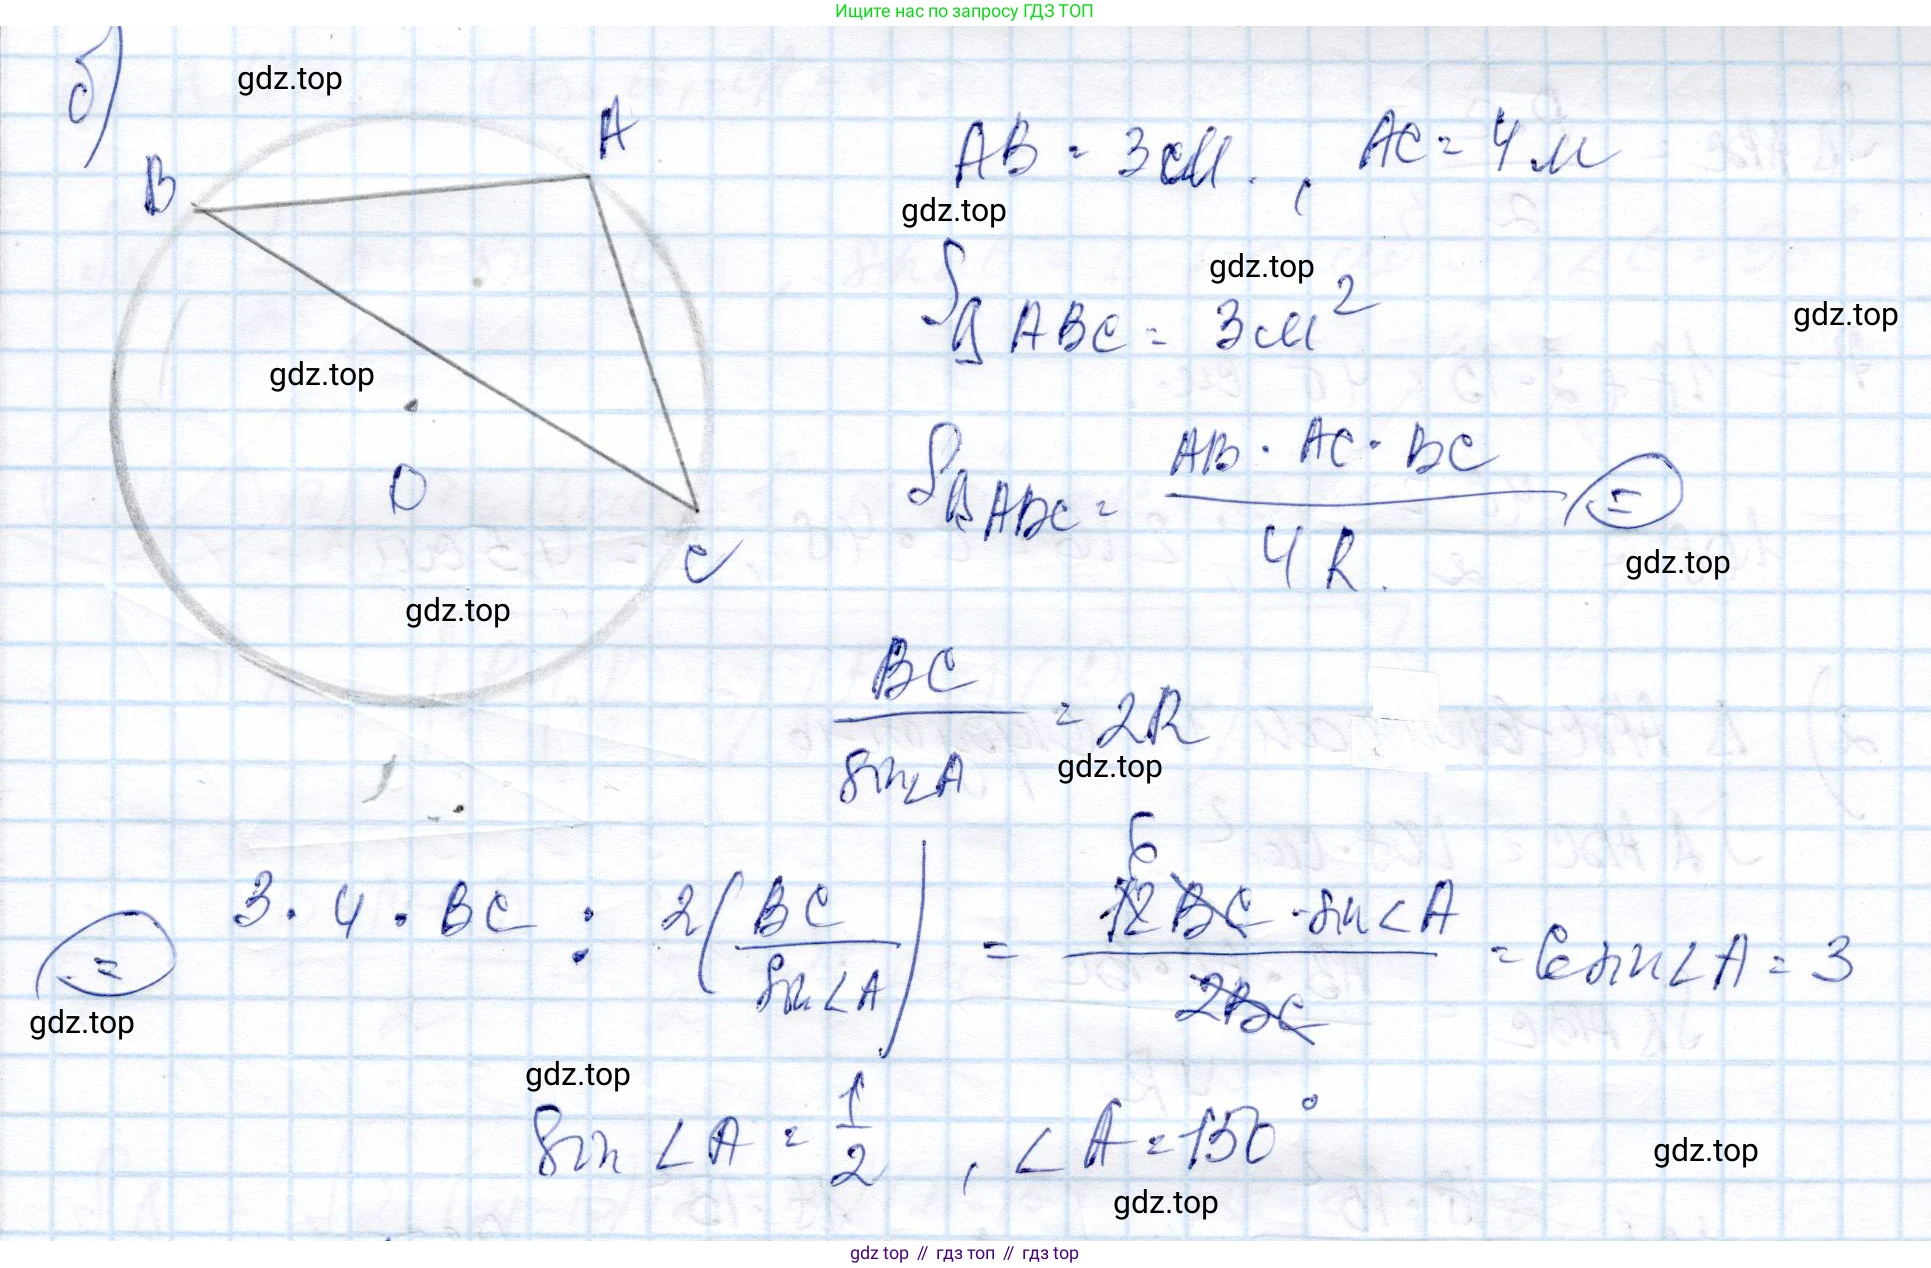 Ищите нас по запросу ГДЗ ТОП
б)
gdz.top
A
B
AB = 3см., AC = 4м
gdz.top
gdz.top
S△ABC = 3см²
gdz.top
gdz.top
S△ABC = AB · AC · BC / 4R. =
O
C
gdz.top
gdz.top
BC / sin∠A = 2R
gdz.top
= 3 · 4 · BC : 2(BC / sin∠A) = 12BC · sin∠A / 2BC = 6sin∠A = 3
6
gdz.top
gdz.top
sin ∠A = 1/2, ∠A = 150°
gdz.top
gdz.top
gdz top // гдз топ // гдз top